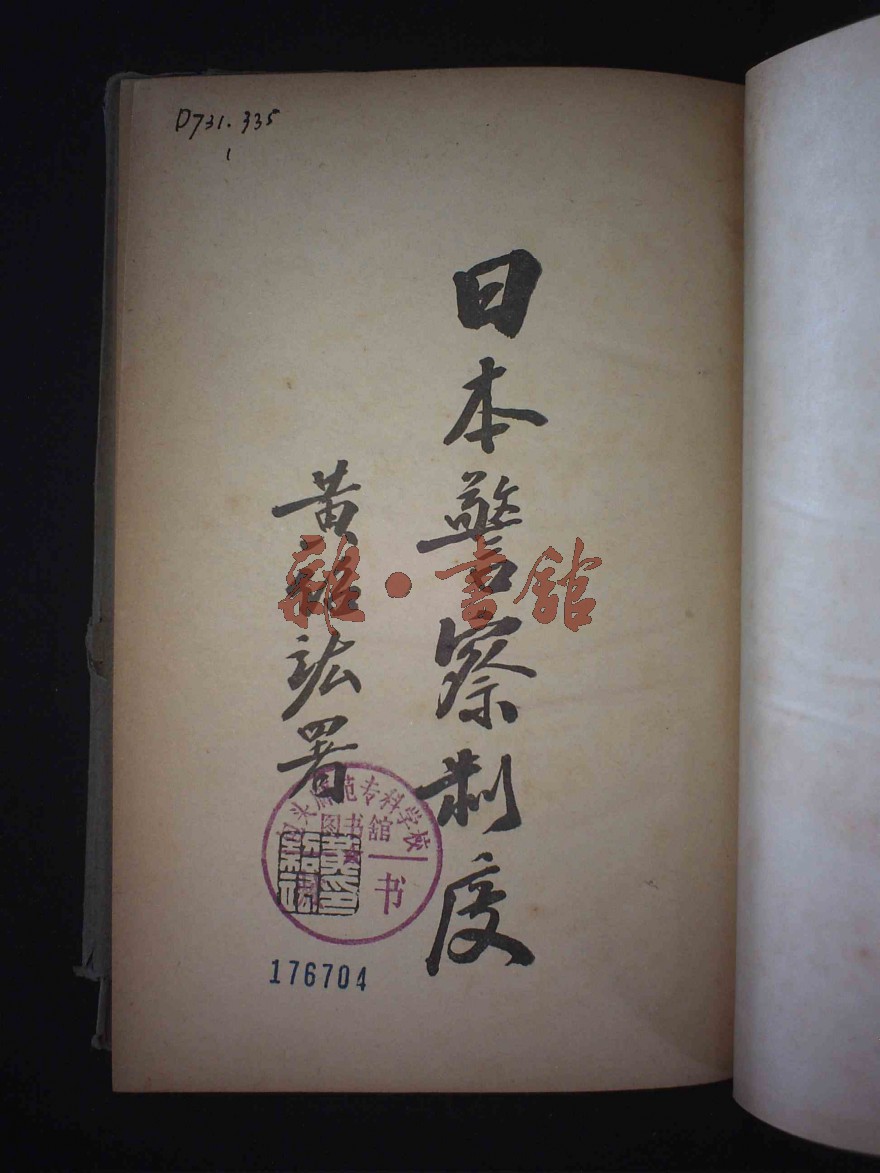 D731.335
1
日本警察制度
黄绍竑署
雜·書館
师范专科学校
图书舘
书
176704